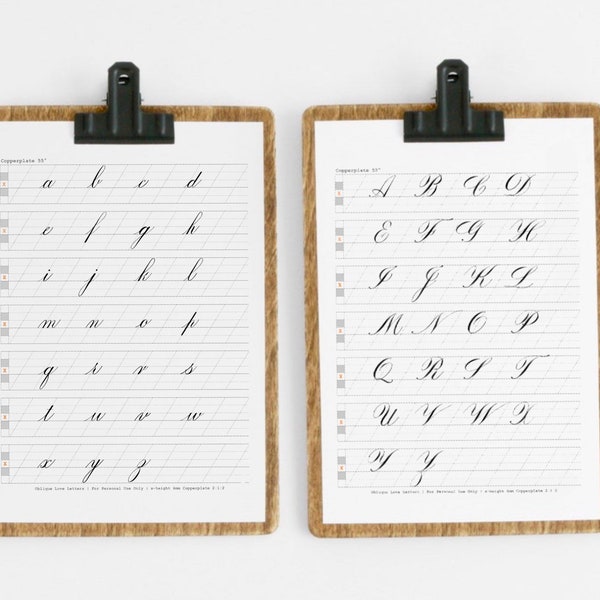 Copperplate 55°
x a b c d
x e f g h
x i j k l
x m n o p
x q r r s
x t u v w
x x y z
Oblique Love Letters | For Personal Use Only | x-height 6mm Copperplate 2:1:2
Copperplate 55°
x A B C D
x E F G H
x I J K L
x M N O P
x Q R S T
x U V W X
x Y Z
Oblique Love Letters | For Personal Use Only | x-height 6mm Copperplate 2:1:2